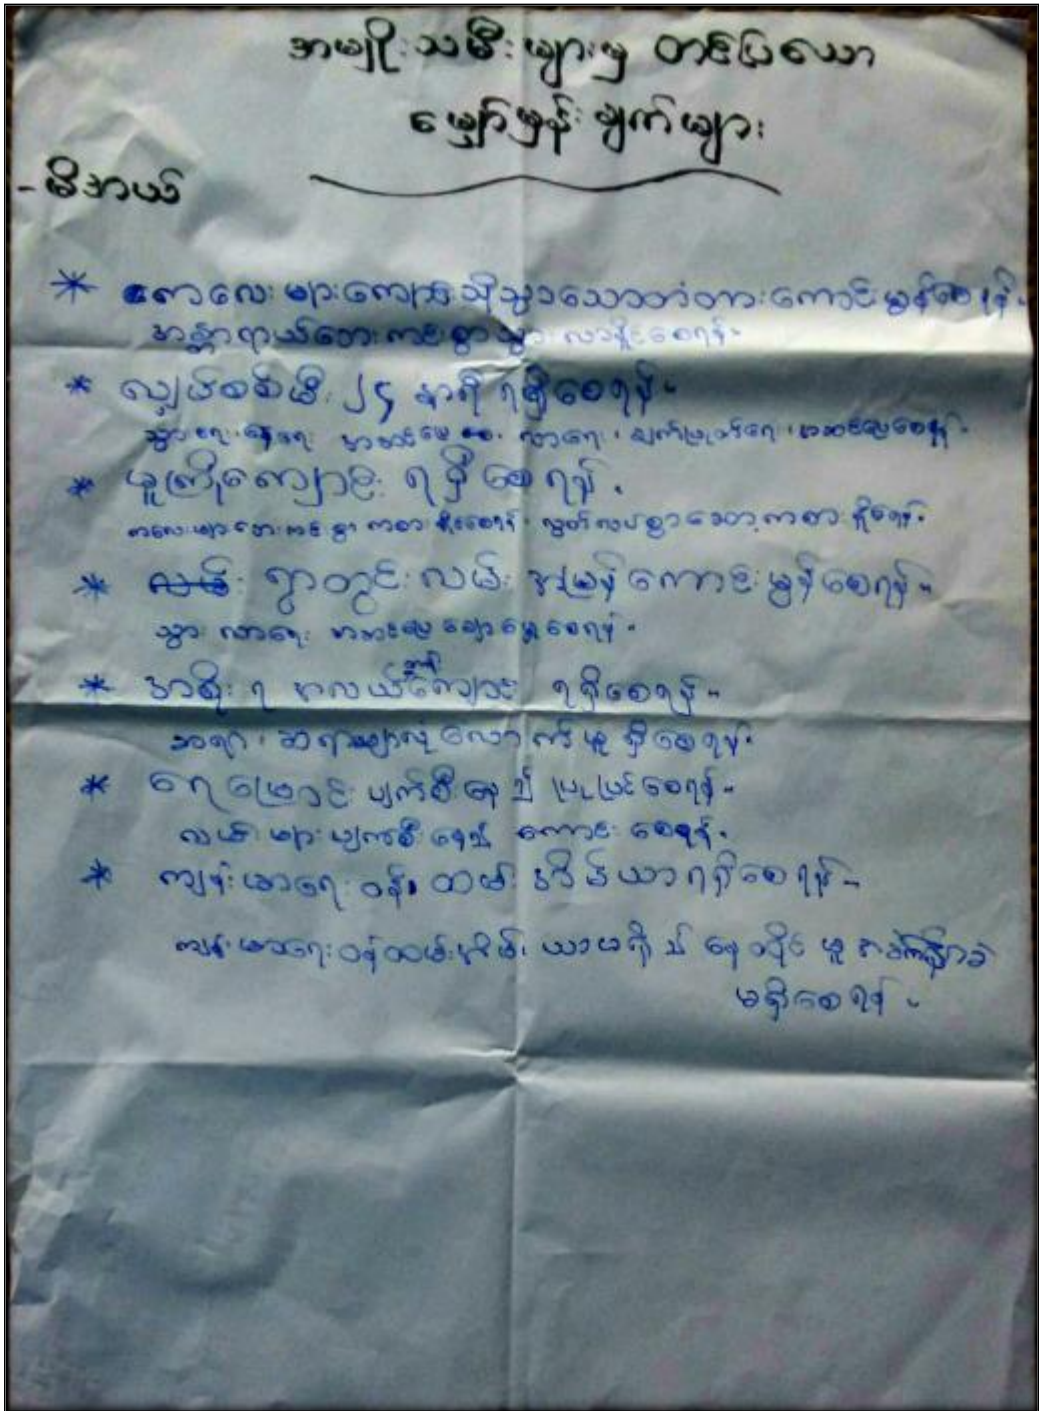 အမျိုးသမီးများမှ တင်ပြသော
မျှော်မှန်းချက်များ
- မိအယ်
* ကလေးများကျောင်းသို့သွားသောတံတားကောင်းမွန်စေရန်။
အန္တာရာယ်ဘေးကင်းစွာသွားလာနိုင်စေရန်။
* လျှပ်စစ်မီး ၂၄ နာရီ ရရှိစေရန်။
သွားရေး နေရေး အဆင်ပြေ လာရေး၊ ချက်ပြုတ်ရေး အဆင်ပြေစေရန်။
* မူကြိုကျောင်း ရရှိစေရန်။
ကလေးများဘေးကင်းစွာ ကစားနိုင်စေရန်၊ လွတ်လပ်စွာဆော့ကစားနိုင်ရန်။
* ရွာတွင်းလမ်း အမြန်ကောင်းမွန်စေရန်။
သွားလာရေး အဆင်ပြေချောမွေ့စေရန်။
* အစိုးရ အလယ်တန်းကျောင်း ရရှိစေရန်။
ဆရာ၊ ဆရာမများလုံလောက်မှု ရှိစေရန်။
* ရေမြောင်းပျက်စီးနေ၍ ပြုပြင်စေရန်။
လမ်းများပျက်စီးနေ၍ ကောင်းစေရန်။
* ကျန်းမာရေးဝန်ထမ်းအိမ်ယာရရှိစေရန်။
ကျန်းမာရေးဝန်ထမ်းအိမ်ယာမရှိ၍ နေထိုင်မှု အခက်အခဲ
မရှိစေရန်။